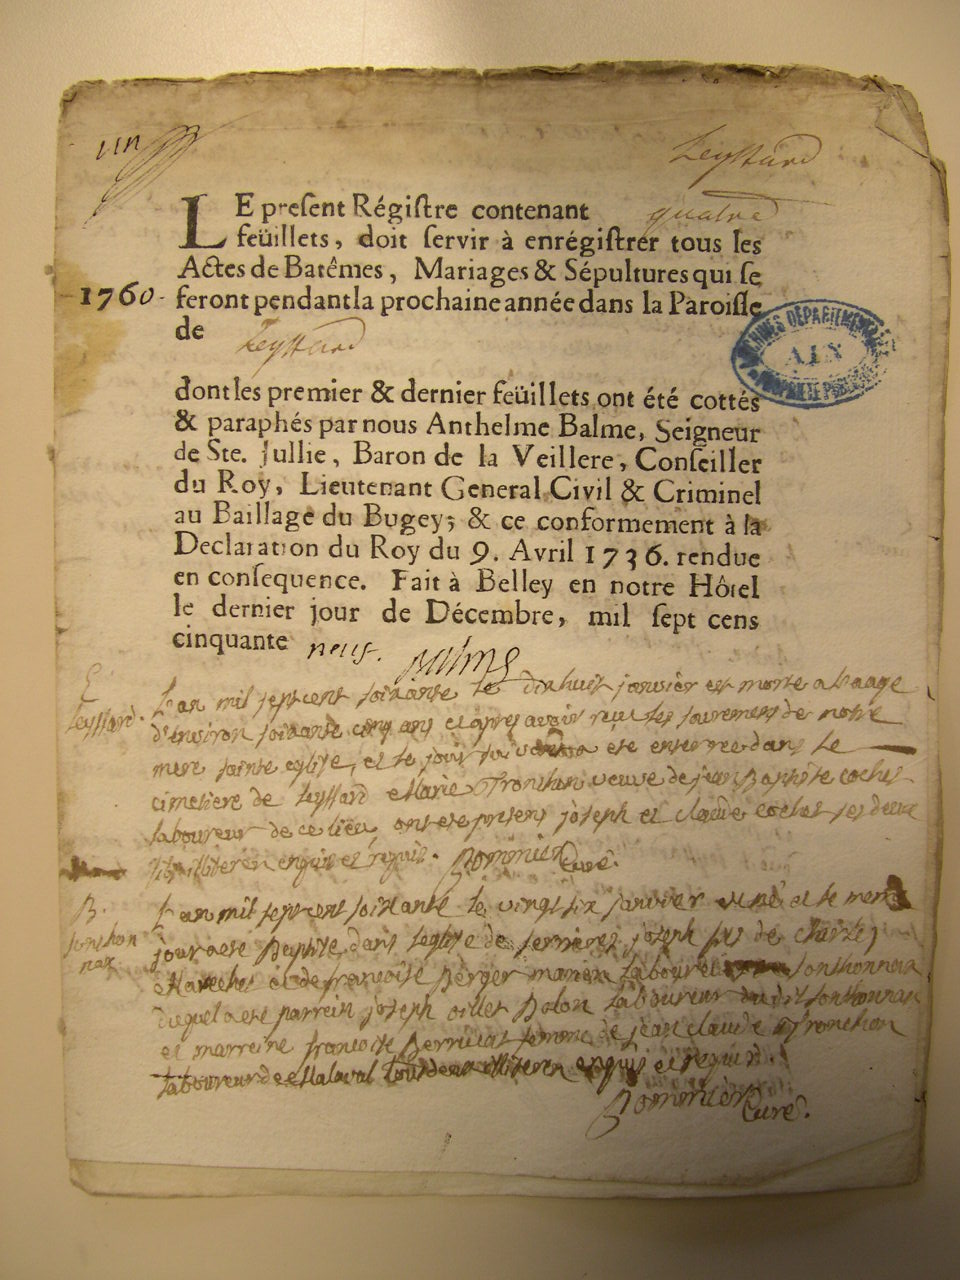 un
Leyssard
LE preſent Régiſtre contenant quatre
feüillets, doit ſervir à enrégiſtrer tous les
Actes de Batêmes, Mariages & Sépultures qui ſe
1760 feront pendant la prochaine année dans la Paroiſſe
de Leyssard
ARCHIVES DÉPARTEMENTALES
AIN
dont les premier & dernier feüillets ont été cottés
& paraphés par nous Anthelme Balme, Seigneur
de Ste. Jullie, Baron de la Veillere, Conſeiller
du Roy, Lieutenant General Civil & Criminel
au Baillage du Bugey; & ce conformement à la
Declaration du Roy du 9. Avril 1736. rendue
en conſequence. Fait à Belley en notre Hôtel
le dernier jour de Décembre, mil ſept cens
cinquante neuf. Balme
Leyssard. L'an mil sept cent soixante le dix huit janvier est morte a l'aage
d'environ soixante cinq ans et apres avoir reçu les sacrements de notre
mere sainte eglise, et le jour suivant a ete enterree dans le
cimetiere de Leyssard Marie Tronchon veuve de jean Baptiste cochet
laboureur de ce lieu, ont ete presens joseph et claude cochet ses deux
fils illiteres enquis et requis. Bommier Curé.
B. L'an mil sept cent soixante le vingt six janvier est né et le meme
Sonthonnax jour a ete Baptisé dans l'eglise de serrieres joseph fils de charles
et de francoise Berger mariés laboureur Sonthonnax
duquel a ete parrein joseph Bolon laboureur dudit Sonthonnax
et marreine francoise femme de jean claude Tronchon
laboureur de Malaval tous deux illiteres enquis et requis.
Bommier Curé.